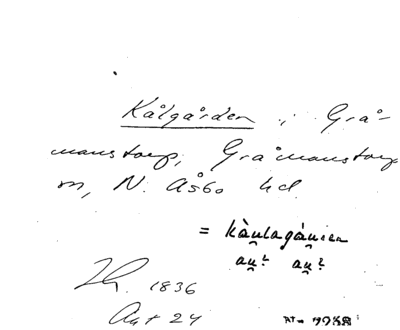 Kålgården i Grå-
manstorp, Gråmanstorp
sn, N. Åsbo hd
= kàu̯lagáu̯ɹen
au̯? au̯?
1836
Akt 24